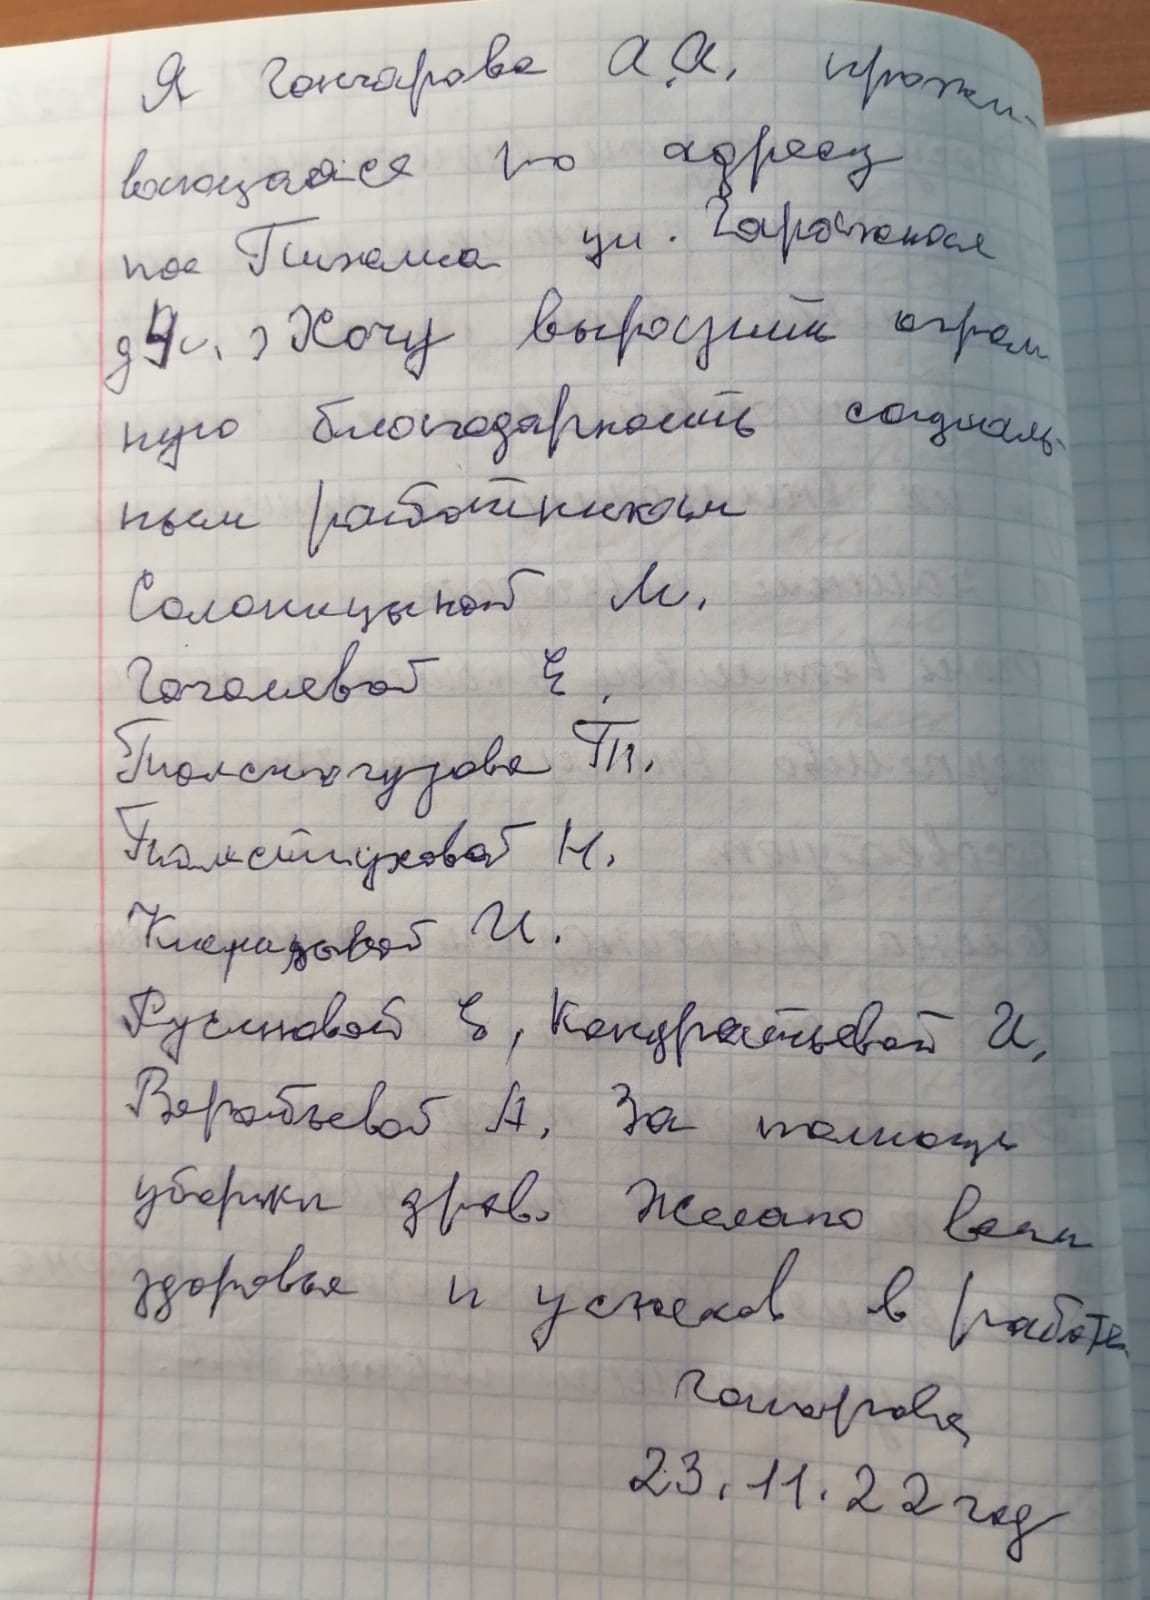 Я Гончарова А.А. прожи-
вающаяся по адресу
пос Пижма ул. Гаражная
Хочу выразить огром
ную благодарность социаль-
ным работникам
Солоницыной М.
Гоголевой Е.
Н.
И.
Русиновой Е, Кондратьевой И,
Воробьевой А. За помощь
уборки дров. Желаю вам
здоровья и успехов в работе
Гончарова
23.11.22 год